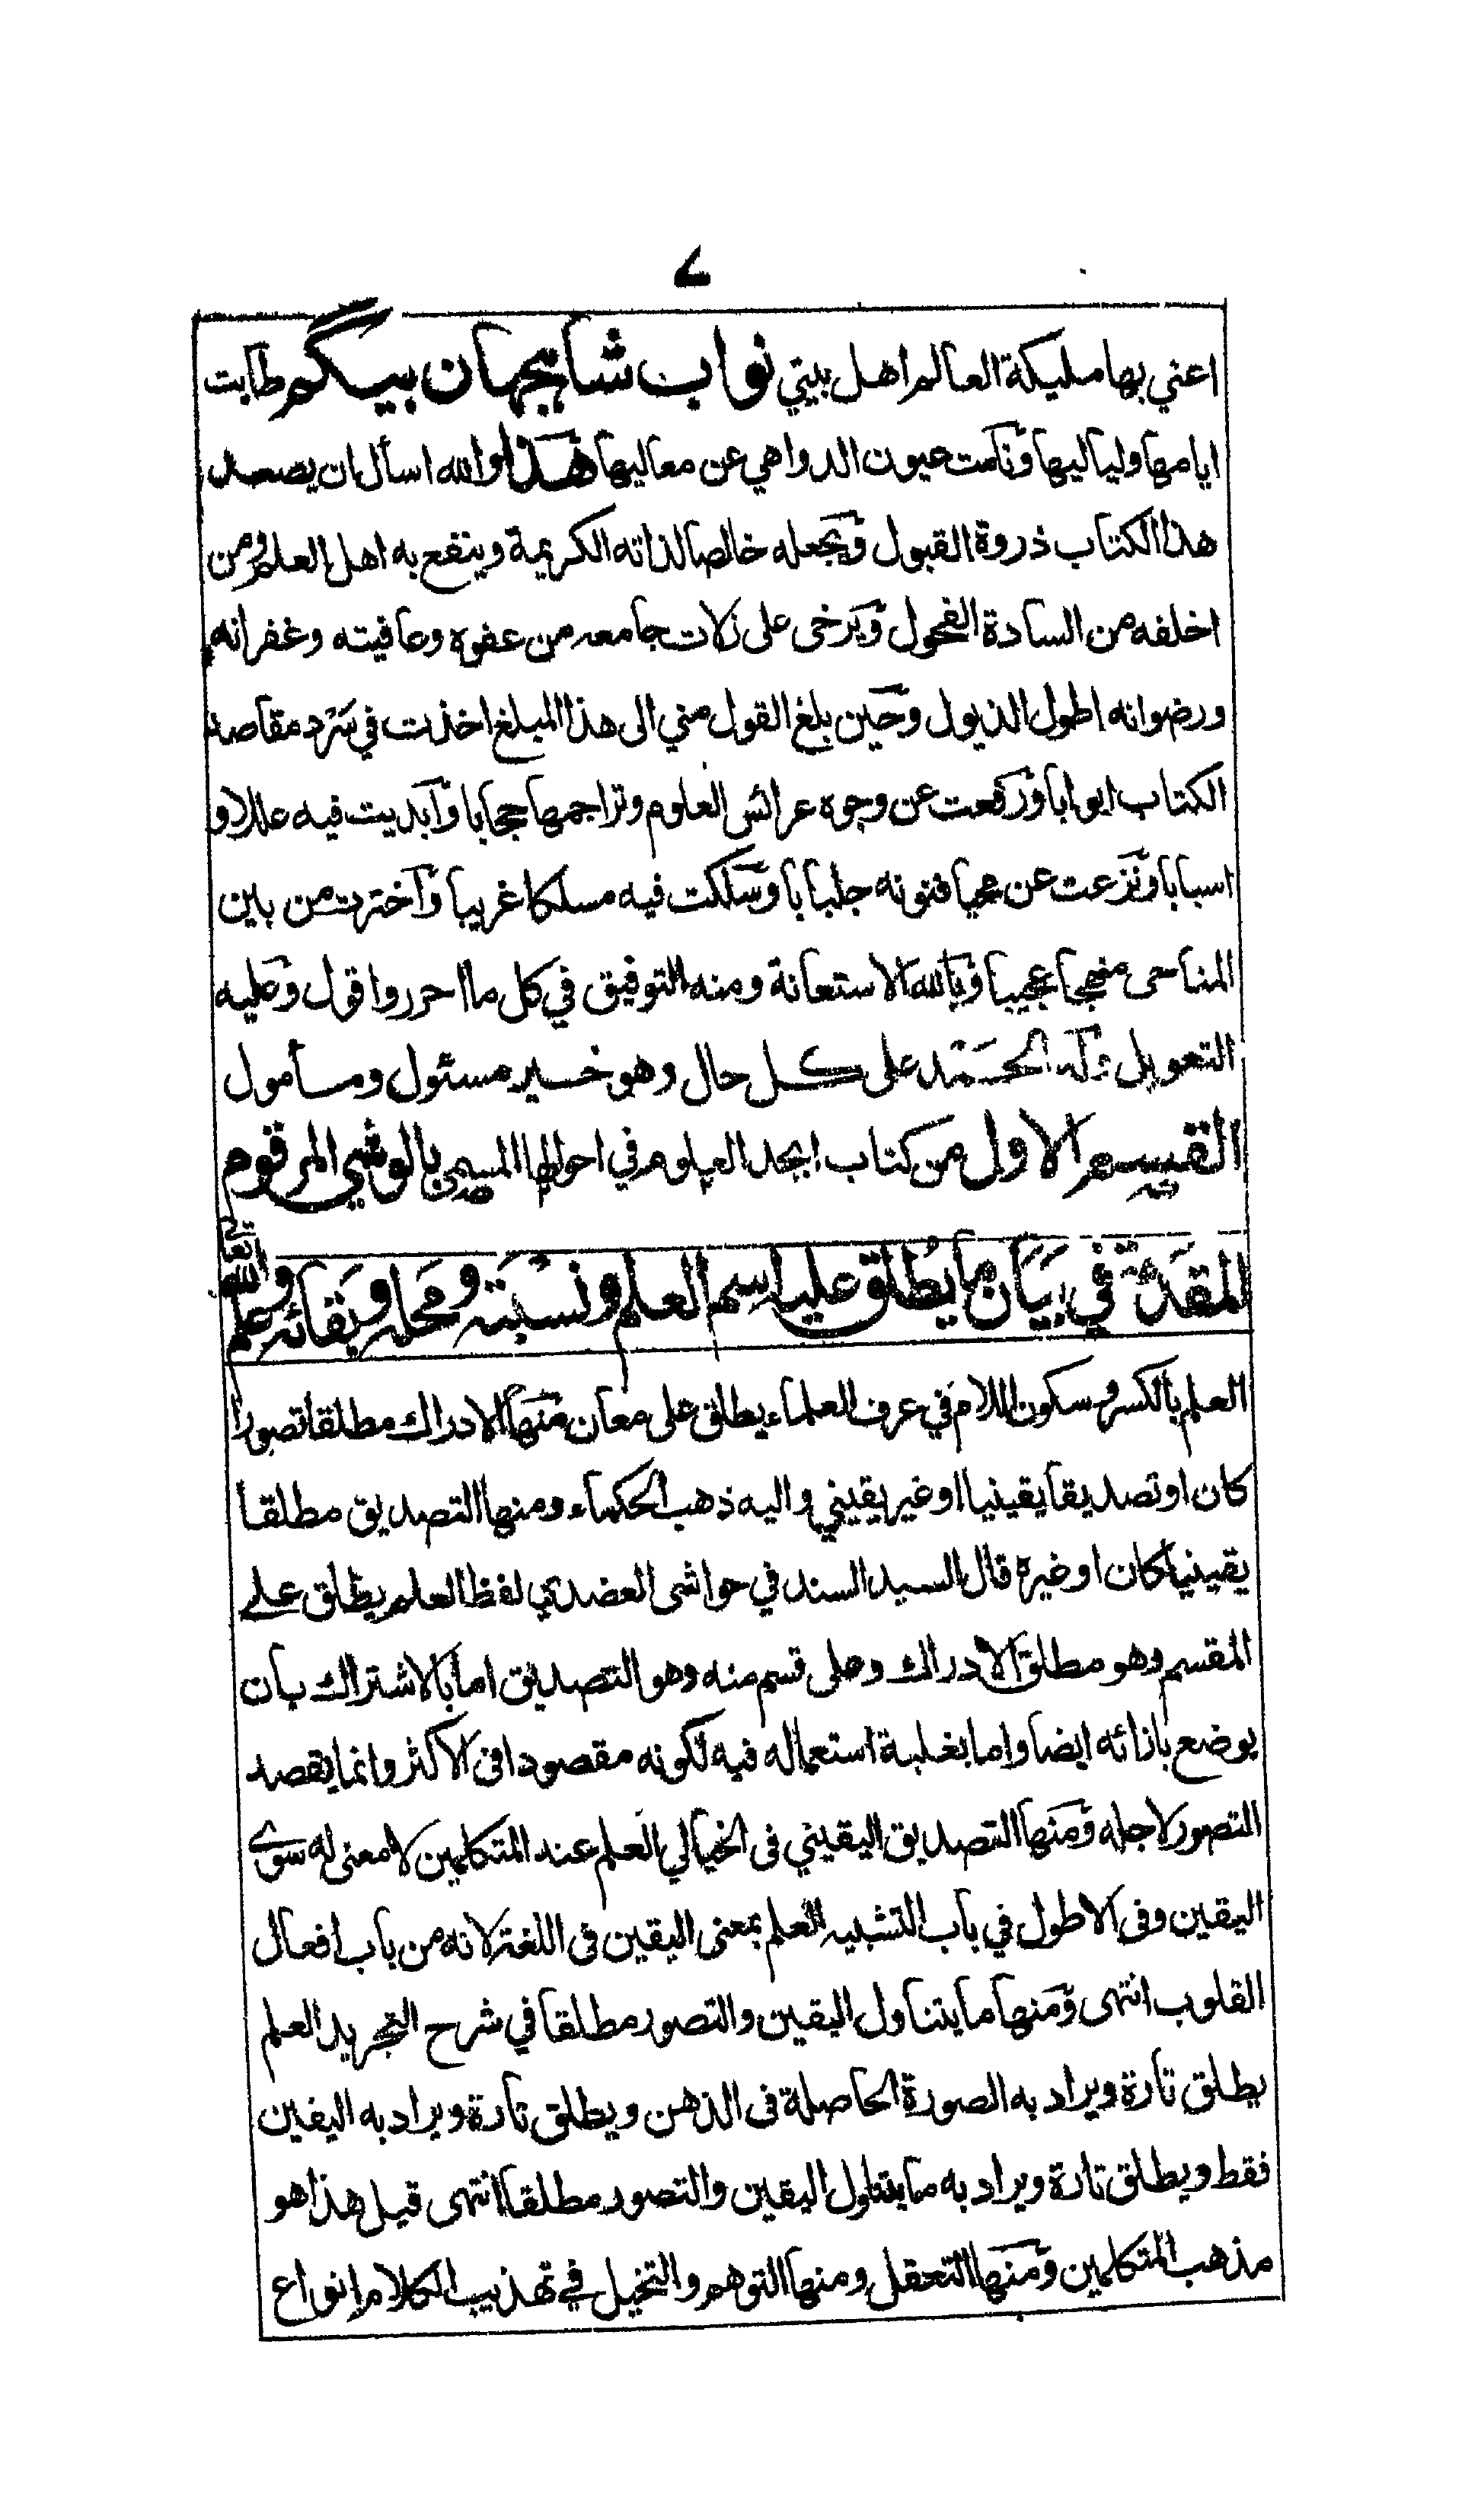 ٧
اعني بها مليكة العالم اهل بيتي نواب شاهجهان بيگم طابت
ايامها ولياليها ونامت عيون الدواهي عن معاليها هذا والله اسأل ان يصعد
هذا الكتاب ذروة القبول ويجعله خالصا لذاته الكريمة وينفع به اهل العلم ومن
اخلفه من السادة الفحول ويرخى على زلات جامعه من عفوه وعافيته وغفرانه
ورضوانه اطول الذيول وحين بلغ القول مني الى هذا المبلغ اخذت في سرد مقاصد
الكتاب ابوابا ورفعت عن وجوه عرائس العلوم وتراجمها حجابا وابديت فيه عللا و
اسبابا ونزعت عن محيا فنونه جلبابا وسلكت فيه مسلكا غريبا واخترت من بين
المناحى منهجا عجيبا وبالله الاستعانة ومنه التوفيق في كل ما احرر واقول وعليه
التعويل وله الحمد على كل حال وهو خير مسئول ومامول
القسم الاول من كتاب ابجد العلوم في احوالها المسمى بالوشي المرقوم
المقدمة في بيان ما يطلق عليه اسم العلم ونسبته ومحله وبقائه وعلم الله تعالى
العلم بالكسر وسكون اللام في عرف العلماء يطلق على معان منها الادراك مطلقا تصورا
كان او تصديقا يقينيا او غير يقيني واليه ذهب الحكماء ومنها التصديق مطلقا
يقينيا كان او غيره قال السيد السند في حواشى العضدي لفظ العلم يطلق على
المقسم وهو مطلق الادراك وعلى قسم منه وهو التصديق اما بالاشتراك بان
يوضع بازائه ايضا واما بغلبة استعماله فيه لكونه مقصودا فى الاكثر وانما يقصد
التصور لاجله ومنها التصديق اليقيني فى الخيالي العلم عند المتكلمين لا معنى له سوى
اليقين وفى الاطول في باب التشبيه العلم بمعنى اليقين فى اللغة لانه من باب افعال
القلوب انتهى ومنها ما يتناول اليقين والتصور مطلقا في شرح التجريد العلم
يطلق تارة ويراد به الصورة الحاصلة فى الذهن ويطلق تارة ويراد به اليقين
فقط ويطلق تارة ويراد به ما يتناول اليقين والتصور مطلقا انتهى قيل هذا هو
مذهب المتكلمين ومنها التعقل ومنها التوهم والتخيل في تهذيب الكلام انواع